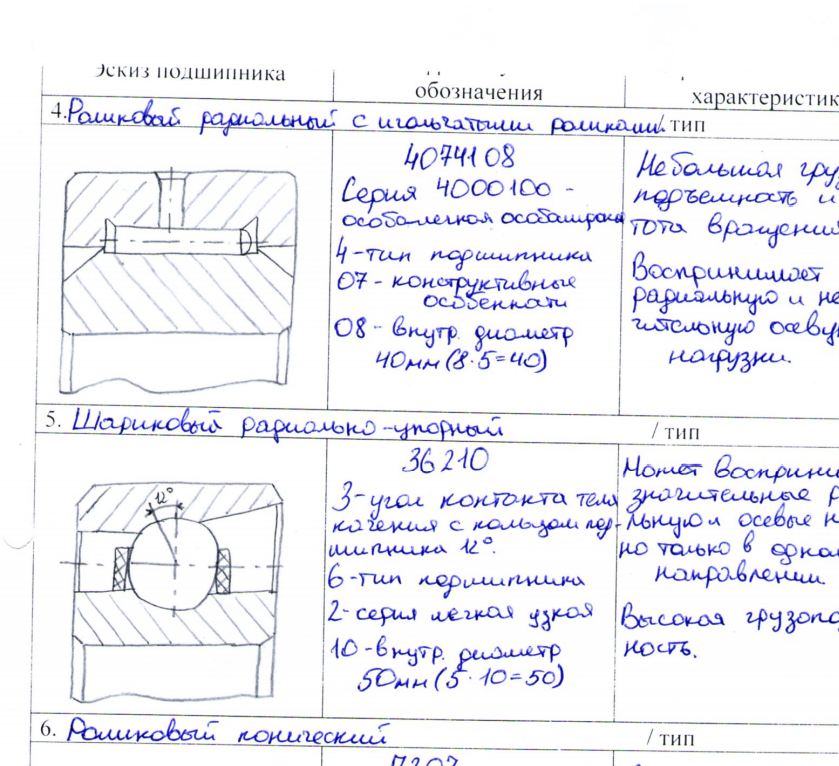 Эскиз подшипника
обозначения
характеристик
4. Роликовый радиальный с игольчатыми роликами / тип
4074108
Серия 4000100 -
особолегкая особоширокая
4-тип подшипника
07 - конструктивные
особенности
08 - внутр. диаметр
40мм (8·5=40)
Небольшая гру
подъемность и
тота вращения
Воспринимает
радиальную и не
чительную осеву
нагрузки.
5. Шариковый радиально-упорный / тип
36210
3-угол контакта тела
качения с кольцом под-
шипника 12°.
6-тип подшипника
2-серия легкая узкая
10-внутр. диаметр
50мм (5·10=50)
Может восприни
значительные р
льную и осевые н
но только в одном
направлении.
Высокая грузопо
ность.
12°
6. Роликовый конический / тип